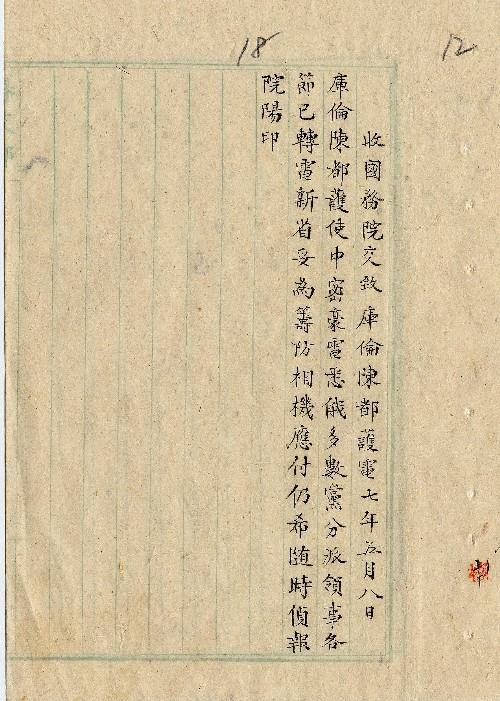 18
12
收國務院交致庫倫陳都護電七年五月八日
庫倫陳都護使中密豪電悉俄多數黨分派領事各
節已轉電新省妥為籌防相機應付仍希随時偵報
院陽印